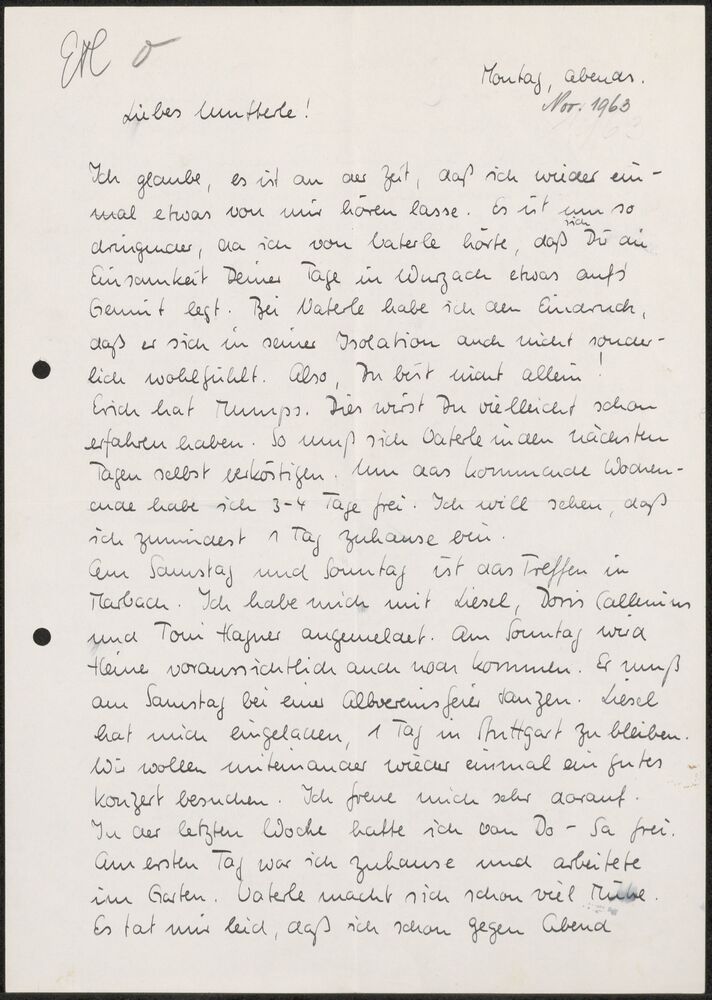 Montag, abends.
Nov. 1963
Liebes Mutterle!
Ich glaube, es ist an der Zeit, daß ich wieder ein-
mal etwas von mir hören lasse. Es ist um so
dringender, da ich von Vaterle hörte, daß sich Dir die
Einsamkeit Deiner Tage in Wurzach etwas aufs
Gemüt legt. Bei Vaterle habe ich den Eindruck,
daß er sich in seiner Isolation auch nicht sonder-
lich wohlfühlt. Also, Du bist nicht allein!
Erich hat Mumps. Dies wirst Du vielleicht schon
erfahren haben. So muß sich Vaterle in den nächsten
Tagen selbst verköstigen. Um das kommende Wochen-
ende habe ich 3-4 Tage frei. Ich will sehen, daß
ich zumindest 1 Tag zuhause bin.
Am Samstag und Sonntag ist das Treffen in
Marbach. Ich habe mich mit Liesel, Doris Callenius
und Toni Hagner angemeldet. Am Sonntag wird
Heine voraussichtlich auch noch kommen. Er muß
am Samstag bei einer Albvereinsfeier tanzen. Liesel
hat mich eingeladen, 1 Tag in Stuttgart zu bleiben.
Wir wollen miteinander wieder einmal ein gutes
Konzert besuchen. Ich freue mich sehr darauf.
In der letzten Woche hatte ich von Do - Sa frei.
Am ersten Tag war ich zuhause und arbeitete
im Garten. Vaterle macht sich schon viel Mühe.
Es tat mir leid, daß ich schon gegen Abend